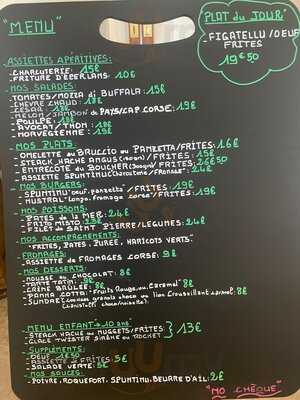 "MENU"
"PLAT DU JOUR"
- FIGATELLU/OEUF
FRITES
19€50
ASSIETTES APÉRITIVES:
- CHARCUTERIE: 15€
- FRITURE D'EPERLANS: 10€
NOS SALADES:
- TOMATES/MOZZA di BUFFALA: 15€
- CHEVRE CHAUD: 18€
- CESAR: 18€
- MELON/JAMBON de PAYS/CAP CORSE: 19€
- POULPE: 18€
- AVOCAT/THON: 18€
- NORVEGIENNE: 19€
NOS PLATS:
- OMELETTE au BRUCCIU ou PANZETTA/FRITES: 16€
- STEACK HACHÉ ANGUS/FRITES: 15€
- ENTRECOTE du BOUCHER/FRITES: 26€50
- ASSIETTE SPUNTINU (charcuterie/FROMAGE): 24€
NOS BURGERS:
- SPUNTINU "oeuf, panzetta"/FRITES: 19€
- MUSTRAL "Lonzo, fromage corse"/FRITES: 19€
NOS POISSONS:
- PATES de la MER: 24€
- FRITO MISTO: 23€
- FILET de SAINT PIERRE/LEGUMES: 24€
NOS ACCOMPAGNEMENTS:
"FRITES, PATES, PUREE, HARICOTS VERTS"
FROMAGES:
- ASSIETTE de FROMAGES CORSE: 9€
NOS DESSERTS:
- MOUSSE au CHOCOLAT: 8€
- TARTE TATIN: 9€
- CREME BRULÉE: 8€
- PANNA COTTA: Fruits Rouge ou Caramel 8€
- SUNDAE 8€
MENU ENFANT - 10 ans"
- STEACK HACHÉ ou NUGGETS/FRITES
- GLACE TWISTER SIRÈNE ou ROCKET
13€
SUPPLEMENTS:
- OEUF: 1€50
- ASSIETTE de FRITES: 5€
- SALADE VERTE: 5€
NOS SAUCES:
- POIVRE, ROQUEFORT, SPUNTINU, BEURRE D'AIL: 2€
"NO CHÈQUE"